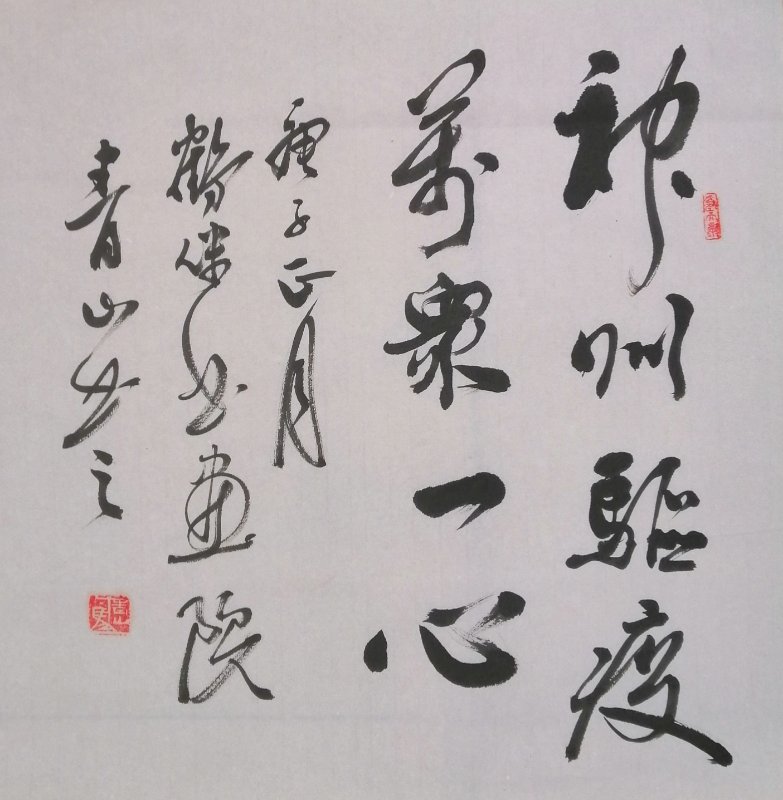 神州驅疫
萬衆一心
庚子正月
鶴伴书畫院
青山书之